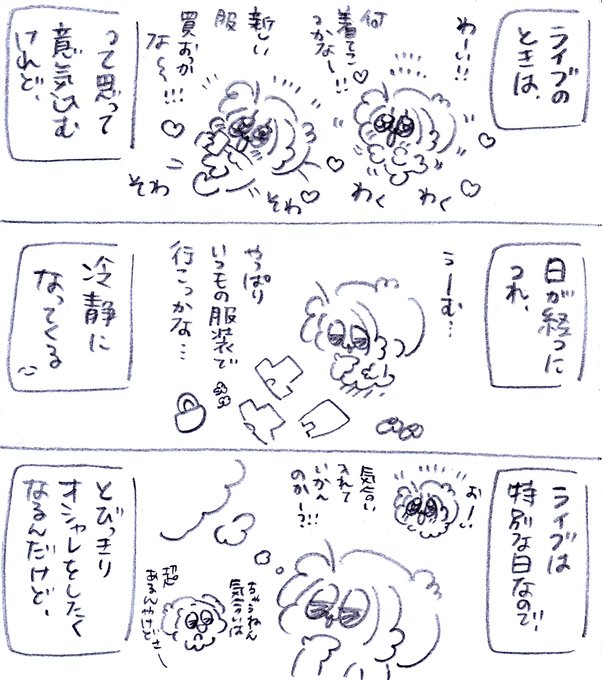 ライブの
ときは、
わーい!!
何
着てこ
っかなー!!
新しい
服
買おっか
な〜!!!
わく
わく
そわ
そわ
って思って
意気込む
けれど、
日が経つに
つれ、
うーむ…
やっぱり
いつもの服装で
行こっかな…
冷静に
なってくる
ライブは
特別な日なので、
おーい
気合い
入れて
いかん
のかー?!!
ちゃうねん
気合いは
超
あるんやけどさー
とびっきり
オシャレをしたく
なるんだけど、